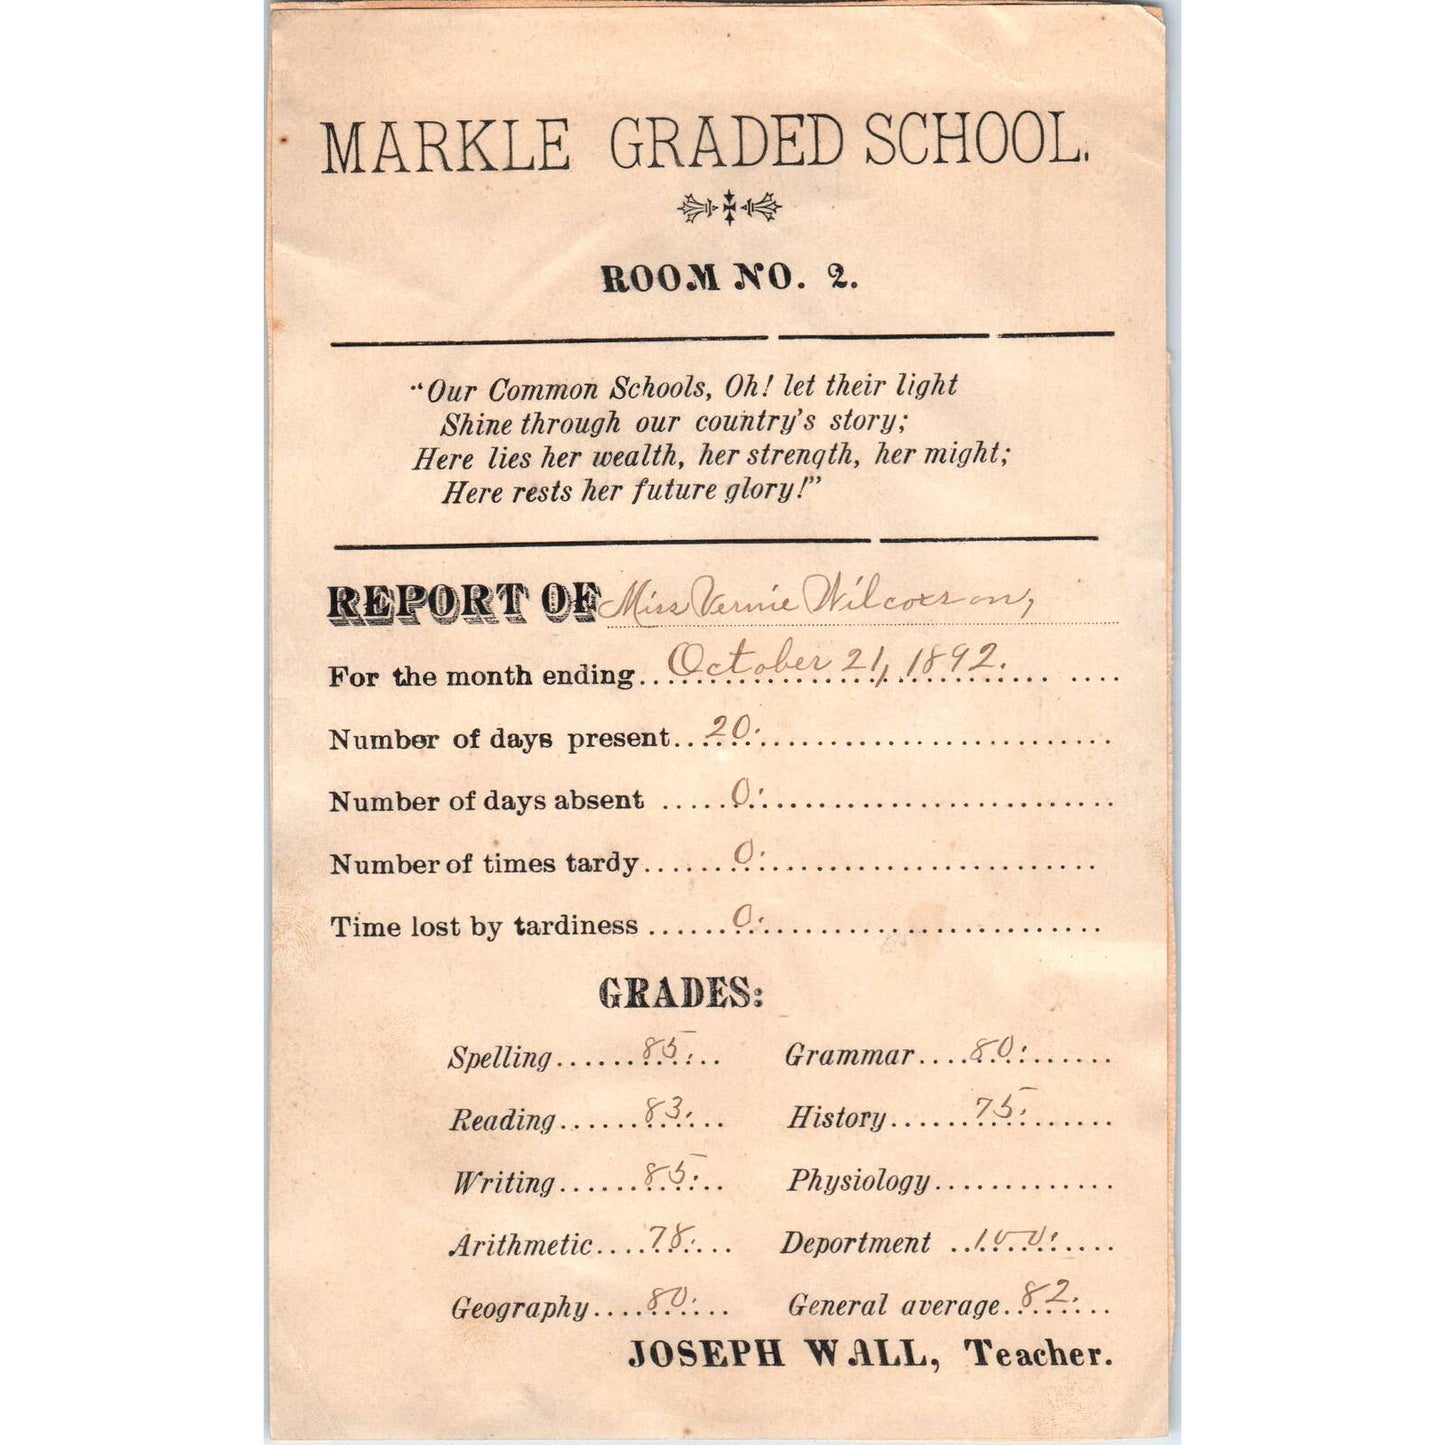 MARKLE GRADED SCHOOL.
ROOM NO. 2.
"Our Common Schools, Oh! let their light
Shine through our country's story;
Here lies her wealth, her strength, her might;
Here rests her future glory!"
REPORT OF Miss Vernie Wilcoxson,
For the month ending October 21, 1892.
Number of days present 20.
Number of days absent 0.
Number of times tardy 0.
Time lost by tardiness 0.
GRADES:
Spelling 85. Grammar 80.
Reading 83. History 75.
Writing 85. Physiology
Arithmetic 78. Deportment 100.
Geography 80. General average 82.
JOSEPH WALL, Teacher.